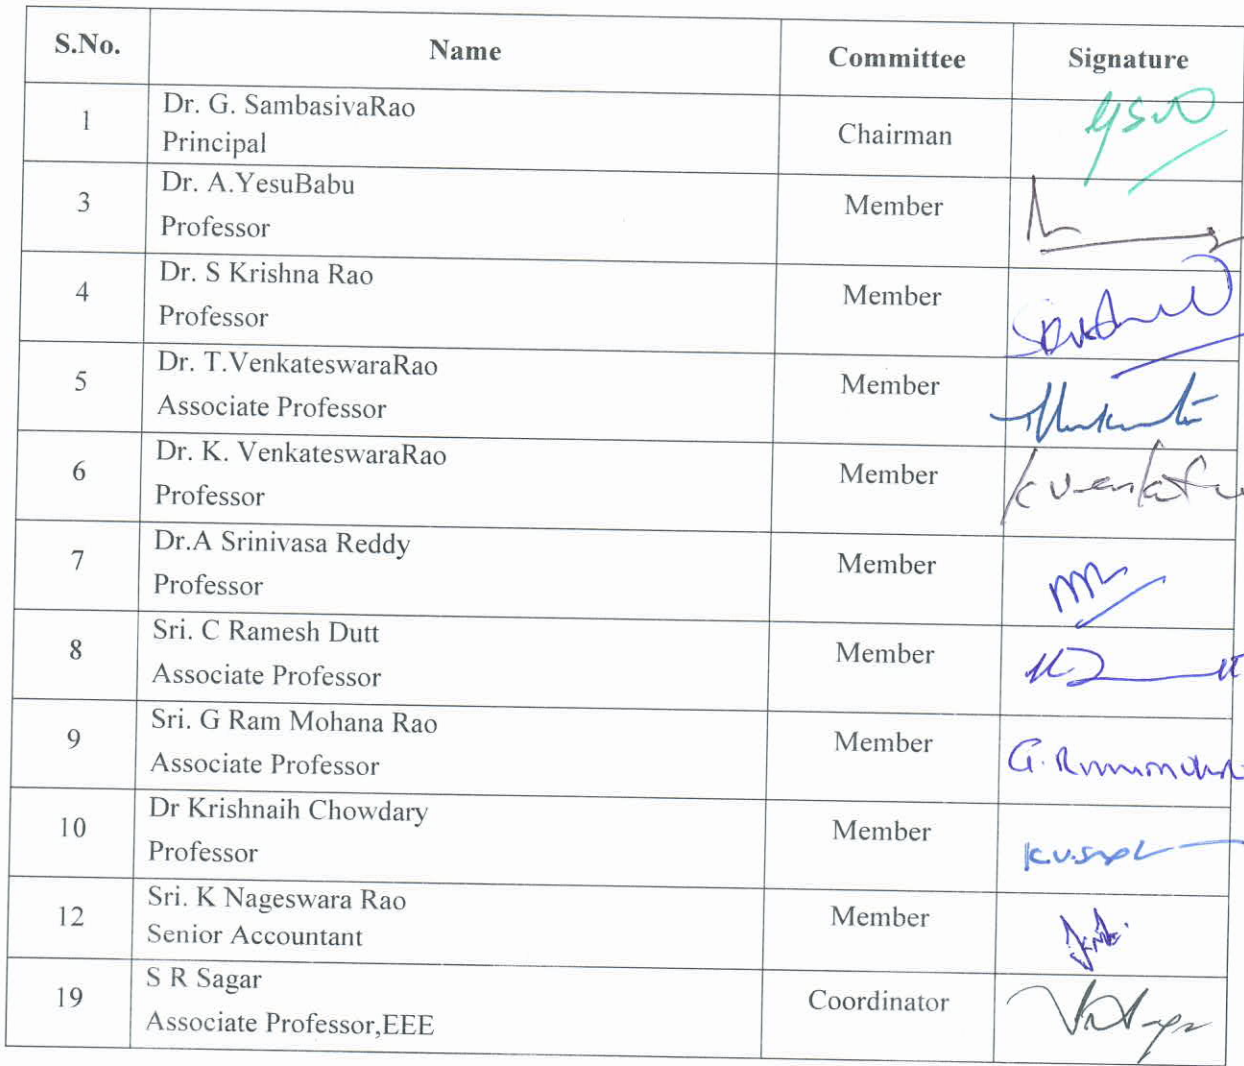 S.No. Name Committee Signature
1 Dr. G. SambasivaRao
Principal Chairman
3 Dr. A.YesuBabu
Professor Member
4 Dr. S Krishna Rao
Professor Member
5 Dr. T.VenkateswaraRao
Associate Professor Member
6 Dr. K. VenkateswaraRao
Professor Member
7 Dr.A Srinivasa Reddy
Professor Member
8 Sri. C Ramesh Dutt
Associate Professor Member
9 Sri. G Ram Mohana Rao
Associate Professor Member
10 Dr Krishnaih Chowdary
Professor Member
12 Sri. K Nageswara Rao
Senior Accountant Member
19 S R Sagar
Associate Professor,EEE Coordinator